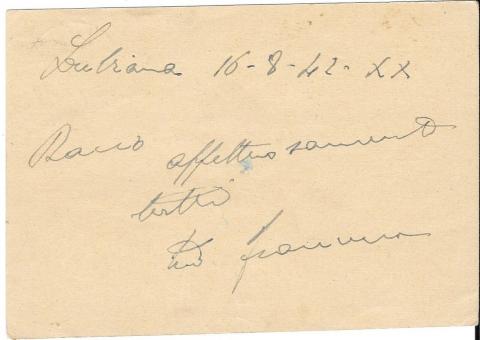 Lubiana 16-8-42-XX
Bacio affettuosamente
tutti